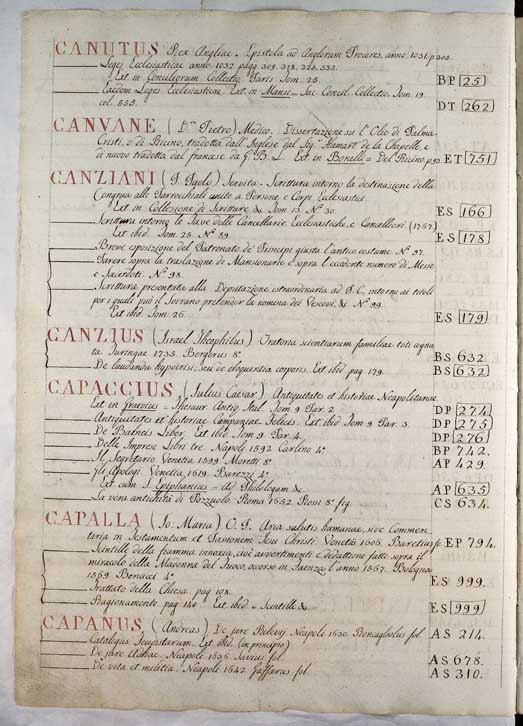 CANUTUS Rex Angliae. Epistola ad Anglorum Proceres, anno 1031. p 308.
Leges Ecclesiasticae anno 1032 pagg. 309. 318. 326. 332.
Ext in Conciliorum Collectio Paris Tom. 25. BP 25
Eaedem Leges Ecclesiasticae. Ext. in Mansi = Sac. Concil. Collectio. Tom. 19
col. 555. DT 262
CANVANE (D.r Pietro) Medico. Dissertazione su l'Olio di Palma-
Cristi, o di Ricino, tradotta dall'Inglese dal Sig.r Hamart de la Chapelle, e
di nuovo tradotta dal francese da G. B. L. Ext in Bonelli = Del Ricino p. 93 ET 751
CANZIANI (P. Paolo) Servita. Scrittura intorno la destinazione della
Congrua alle Parrocchiali unite a Persone e Corpi Eclesiastici
Ext in Collezione di Scritture &c Tom. 13. N.° 30. ES 166
Scrittura intorno le Sieve delle Cancellarie Ecclesiastiche, e Cancellieri (1767)
Ext ibid. Tom. 25. N.° 89. ES 178
Breve esposizione del Patronato de' Principi giusta l'antico costume N.° 97.
Parere sopra la traslazione di Mansionarie e sopra l'eccedente numero di Messe
e Sacerdoti. N.° 98.
Scrittura presentata alla Deputazione estraordinaria ad P. C. intorno ai titoli
per i quali può il Sovrano pretender la nomina dei Vescovi, &c N.° 99.
Ext ibid Tom. 26. ES 179
CANZIUS (Israel Theophilus) Oratoria scientiarum familiae toti cognata
ta Turingae 1735. Bergerus 8° BS 632
De laudanda hypocrisi, seu de eloquentia corporis. Ext. ibid pag 179. BS 632
CAPACCIUS (Julius Caesar) Antiquitates et historiae Neapolitanae.
Ext in Graevius = Thesaur. Antiq. Ital. Tom. 9 Par. 2. DP 274
Antiquitates et historiae Campaniae Felicis. Ext ibid Tom 9. Par. 3. DP 275
De Balneis Liber. Ext ibid. Tom 9. Par. 4. DP 276
Delle Imprese Libri tre. Napoli 1592 Carlino 4° BP 742.
Il Segretario. Venetia 1599 Moretti 8° AP 429.
Gli Apologi. Venetia 1619. Barezzi 4°
Ext cum S. Epiphanius = Ad Phisiologum &c AP 635
La vera antichità di Pozzuolo. Roma 1652 Rossi 8° fig CS 634.
CAPALLA (Jo: Maria) O. P. Arca salutis humanae, sive Commentaria
taria in Testamentum et Passionem Jesu Christi. Venetiis 1606. Baretius fo EP 794.
Scintille della fiamma innoxia, cioè avvertimenti e deduttioni fatte sopra il
miracolo della Madonna del Fuoco, occorso in Faenza l'anno 1567. Bologna
1569. Benacci 4° ES 999.
Trattato della Chiesa. pag 108.
Ragionamento. pag 140. Ext ibid = Scintille &c ES 999
CAPANUS (Andreas) De jure Relevij. Neapoli 1650. Boncagliolus fol AS 214.
Catalogus Feudistarum. Ext ibid. (in principio)
De jure Adhae. Neapoli 1636. Savius fol. AS 678.
De vita et militia. Neapoli 1642 Gaffarus fol. AS 310.